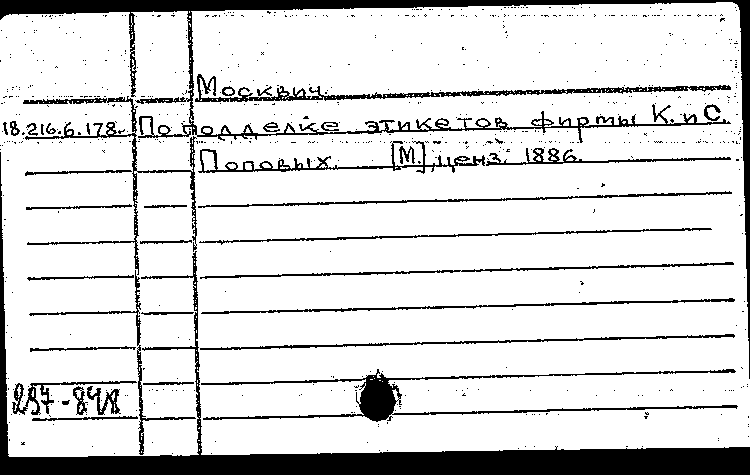 Москвич.
18.216.6.178. По подделке этикетов фирмы К. и С.
Поповых. [М.], ценз. 1886.
297-848